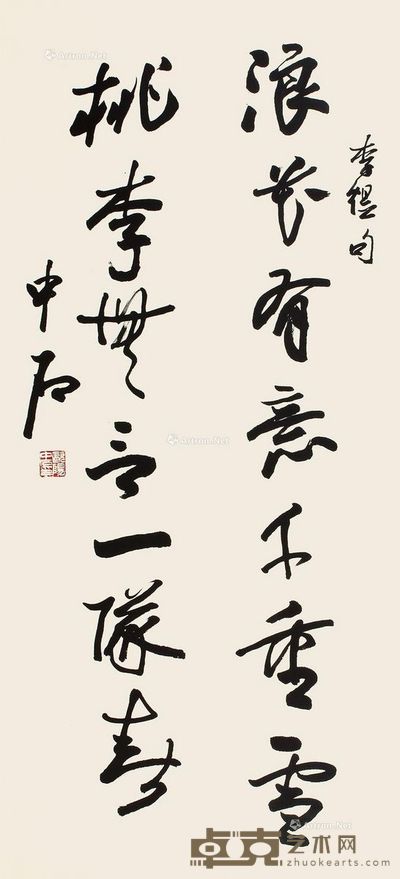 李煜句
浪花有意千重雪
桃李無言一隊春
中石
Artron.Net
Artron.Net
Artron.Net
Artron.Net
卓克艺术网
zhuokearts.com